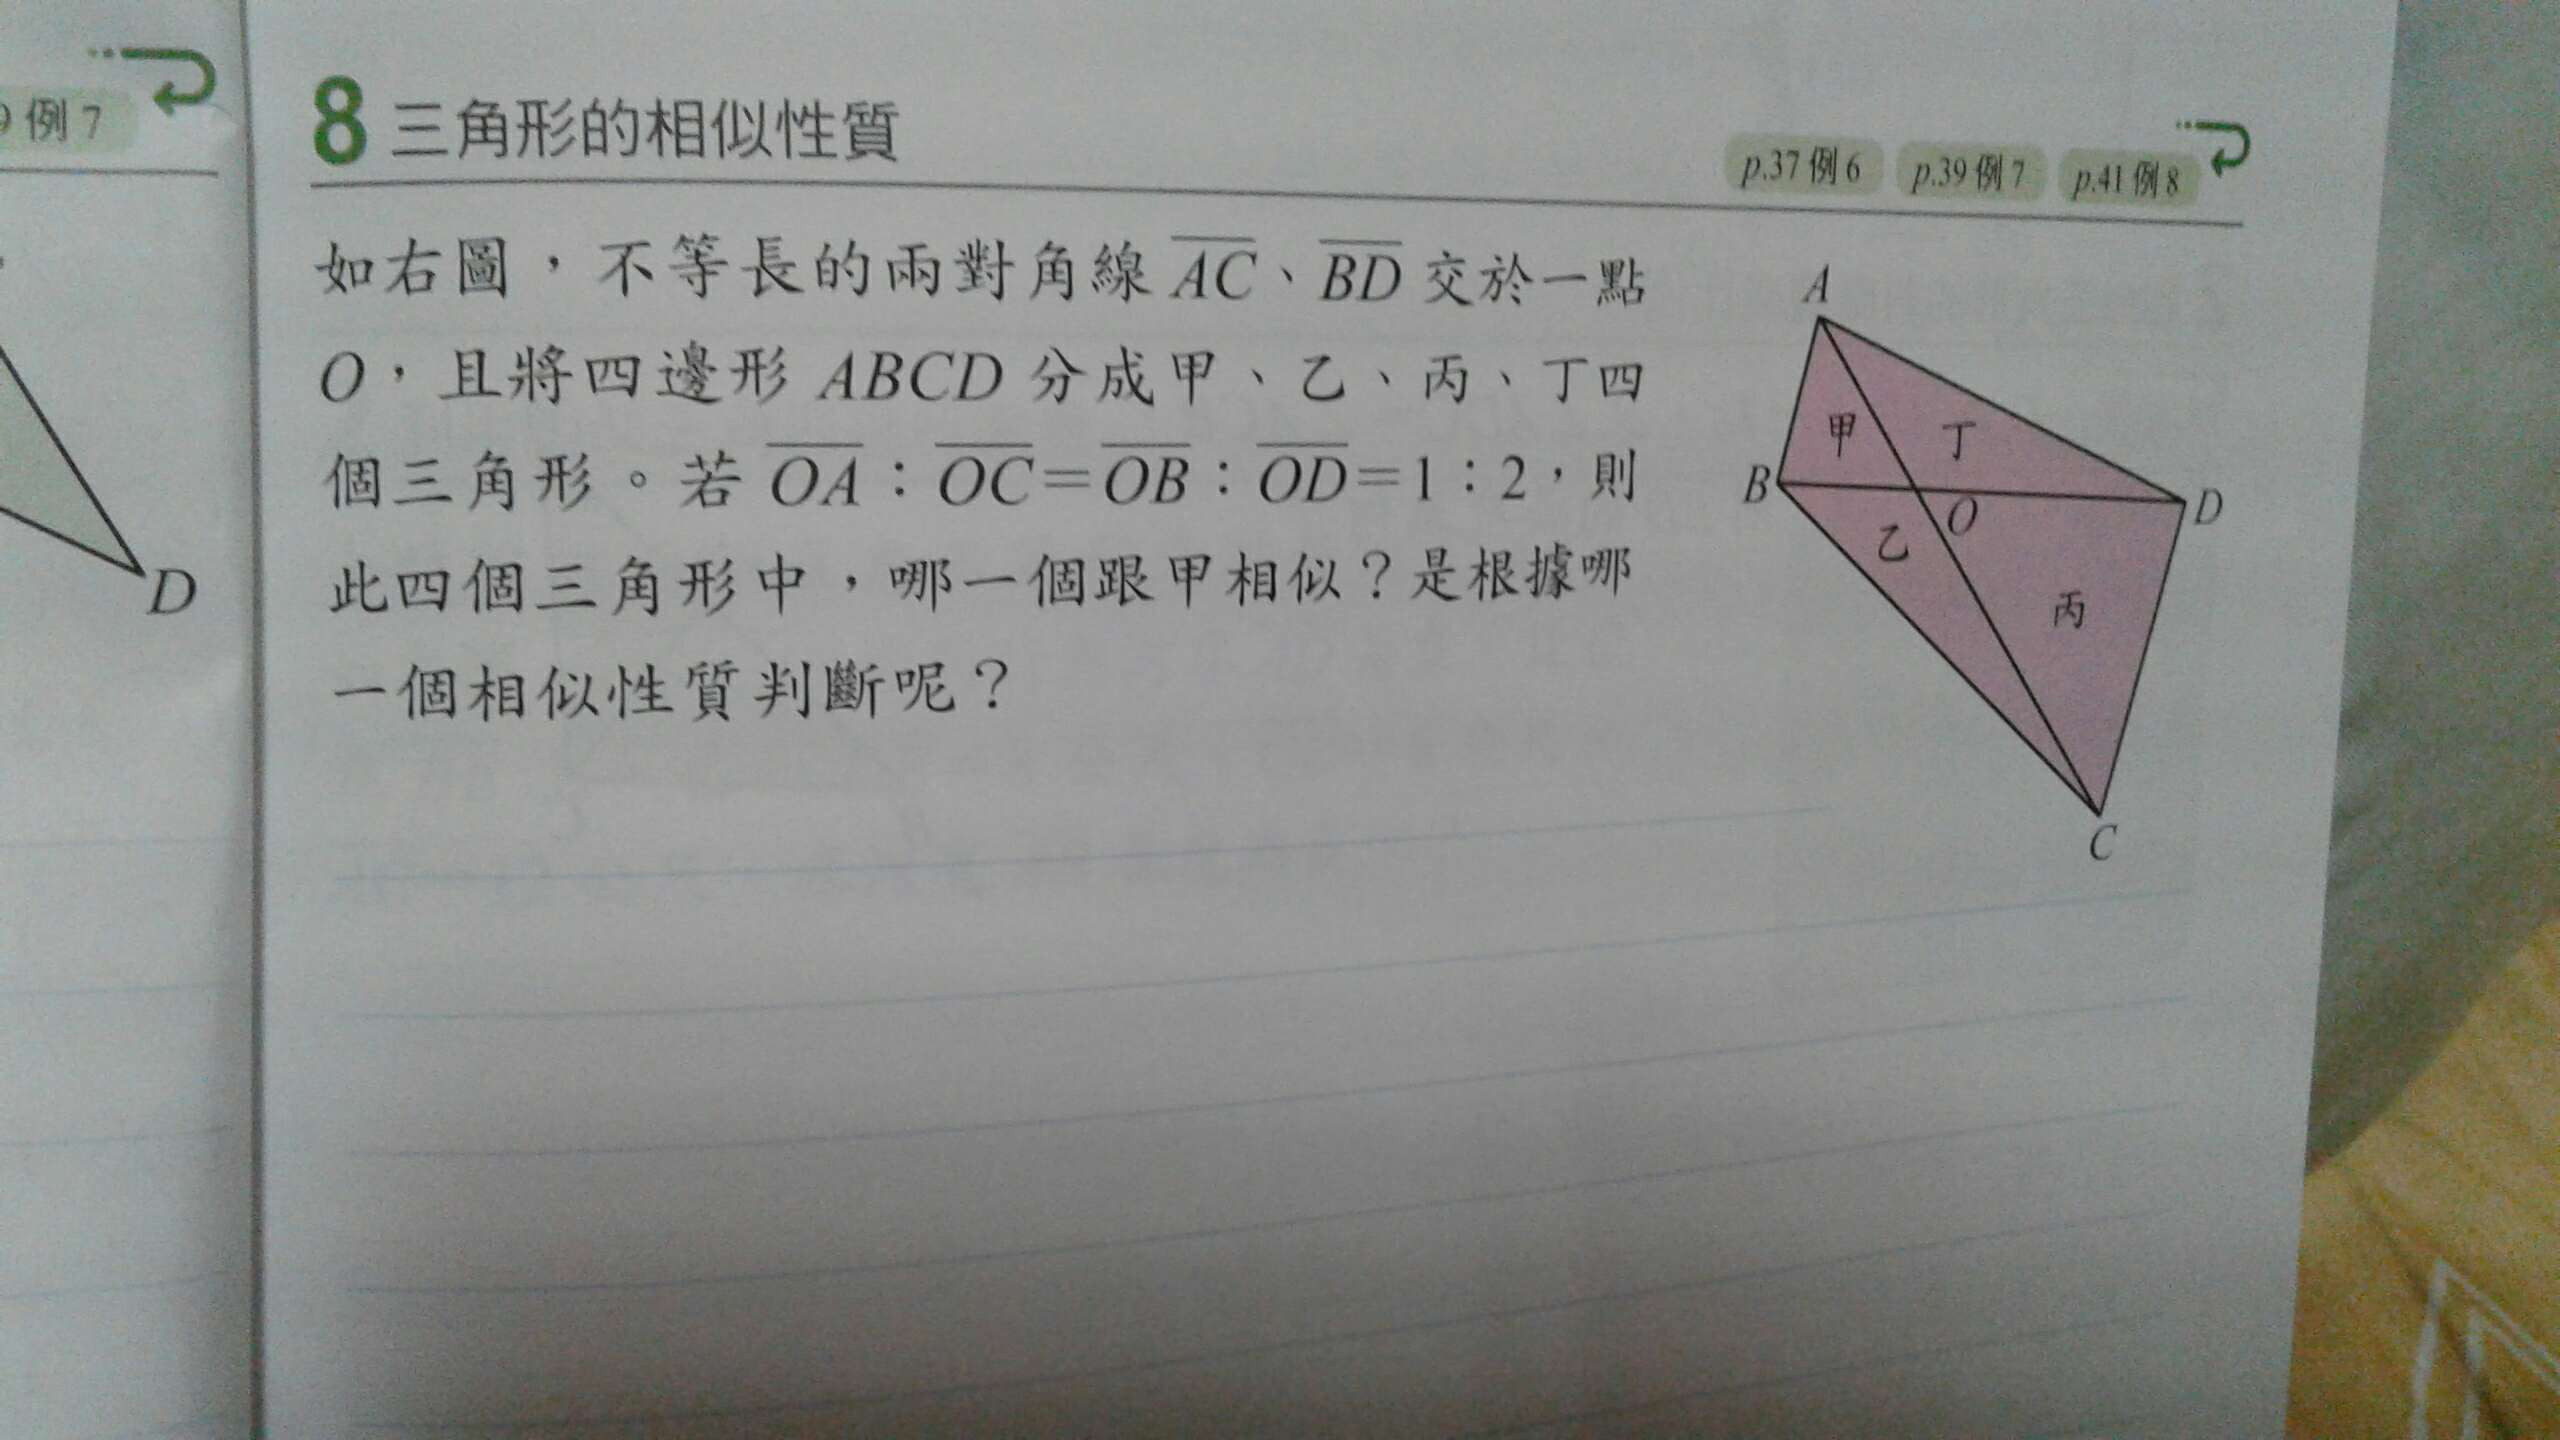 9 例 7
D
8 三角形的相似性質
p.37 例 6 p.39 例 7 p.41 例 8
如右圖，不等長的兩對角線 AC、BD 交於一點
O，且將四邊形 ABCD 分成甲、乙、丙、丁四
個三角形。若 OA：OC＝OB：OD＝1：2，則
此四個三角形中，哪一個跟甲相似？是根據哪
一個相似性質判斷呢？
A
甲 丁
B O D
乙
丙
C